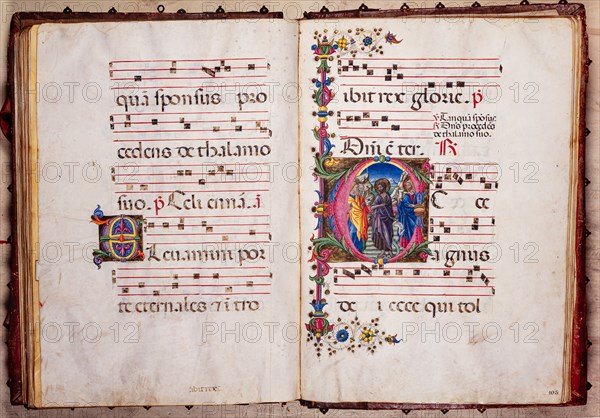 quā sponsus pro
cedens de thalamo
suo. p̄ Celi enarrā. ā
E
leuamini por
te eternales ⁊ ītro
ibit rex glorie. p̄
℣ Tanquā spōse
℟ Dn̄s procedēs
de thalamo suo.
Dn̄i ē ter. ℟
E C ce
agnus
de i ecce qui tol
103